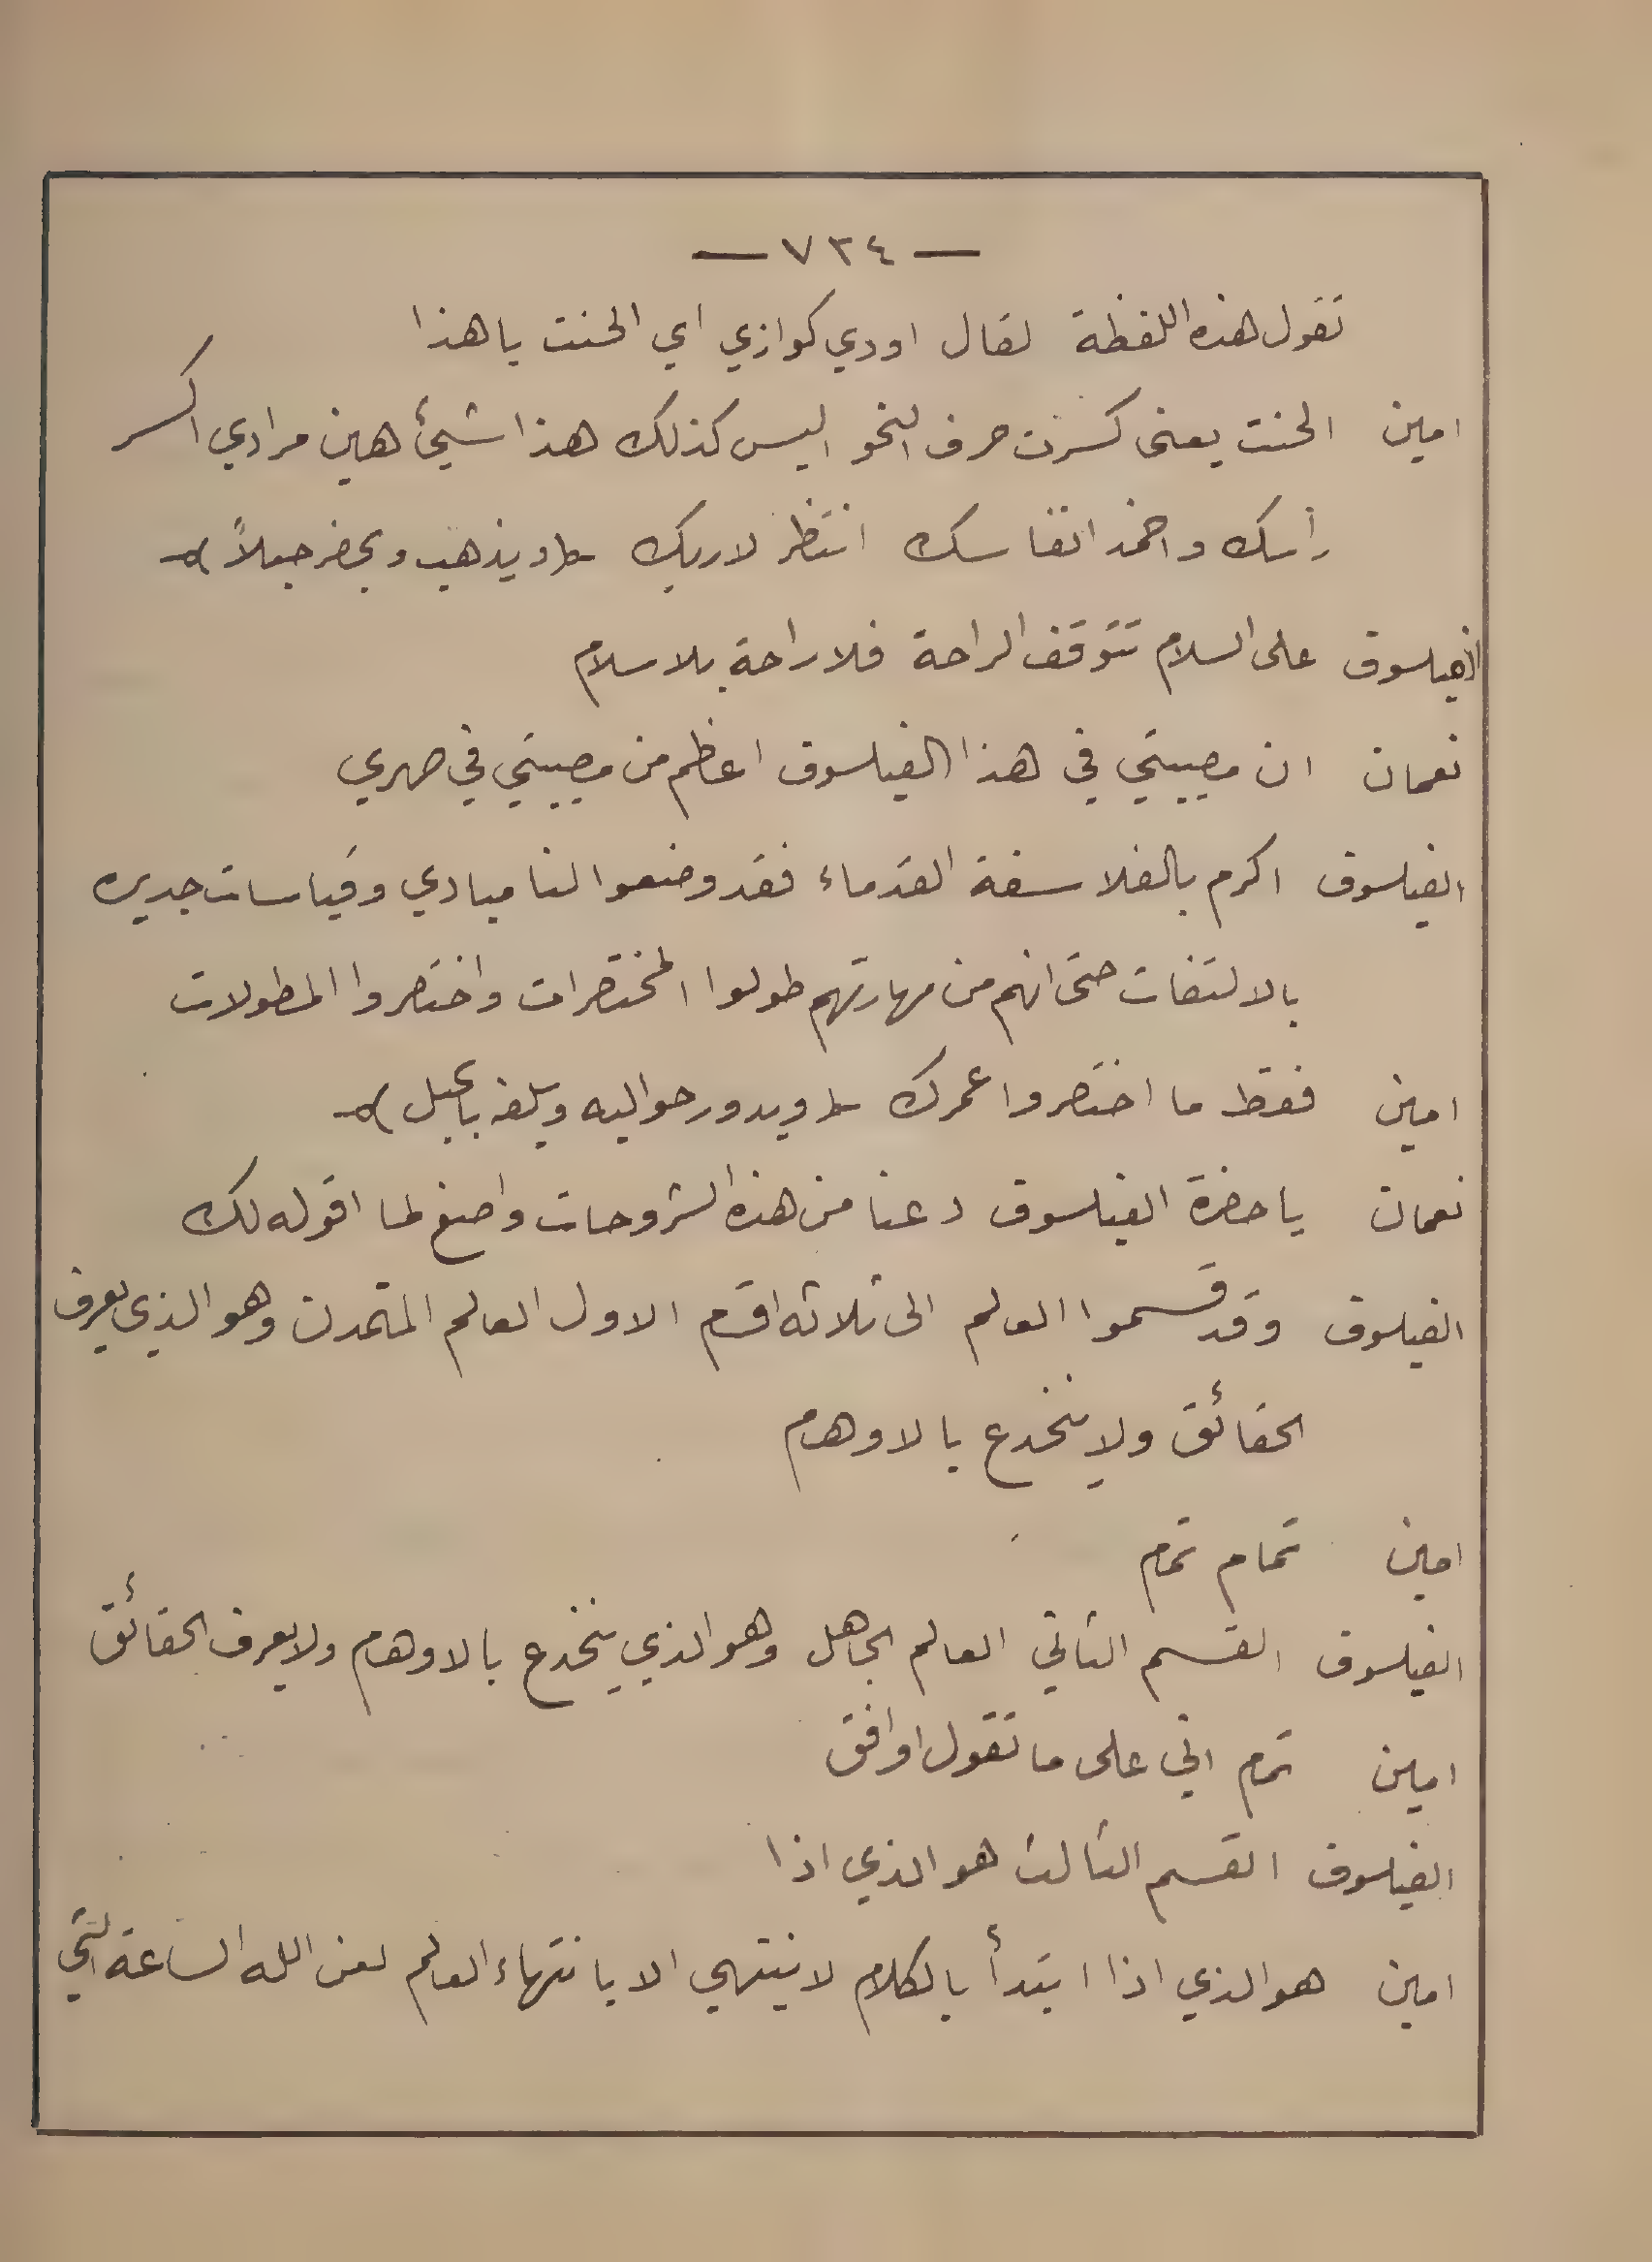 — ٧٣٤ —
تقول هذه اللفظة لقال اودي كوازي اي الحنت يا هذا
امين الحنت يعنى كسرت حرف النحو اليس كذلك هذا شيئ هين مرادي اكسر
رأسك واخمد انفاسك انتظر لاريك (ويذهب ويحضر حبلاً)
الفيلسوف على السلام تتوقف الراحة فلا راحة بلا سلام
نعمان ان مصيبتي في هذا الفيلسوف اعظم من مصيبتي في صهري
الفيلسوف اكرم بالفلاسفة القدماء فقد وضعوا لنا مبادي وقياسات جديره
بالالتفات حتى انهم من مهارتهم طولوا المختصرات واختصروا المطولات
امين فقط ما اختصروا عمرك (ويدور حواليه ويلفه بالحبل)
نعمان يا حضرة الفيلسوف دعنا من هذه الشروحات واصغ لما اقوله لك
الفيلسوف وقد قسموا العالم الى ثلاثه اقسام الاول العالم المتمدن وهو الذي يعرف
الحقائق ولا ينخدع بالاوهام
امين تمام تمام
الفيلسوف القسم الثاني العالم الجاهل وهو الذي ينخدع بالاوهام ولا يعرف الحقائق
امين تمام اني على ما تقول اوافق
الفيلسوف القسم الثالث هو الذي اذا
امين هو الذي اذا ابتدأ بالكلام لا ينتهي الا بانتهاء العالم لعن الله الساعة التي